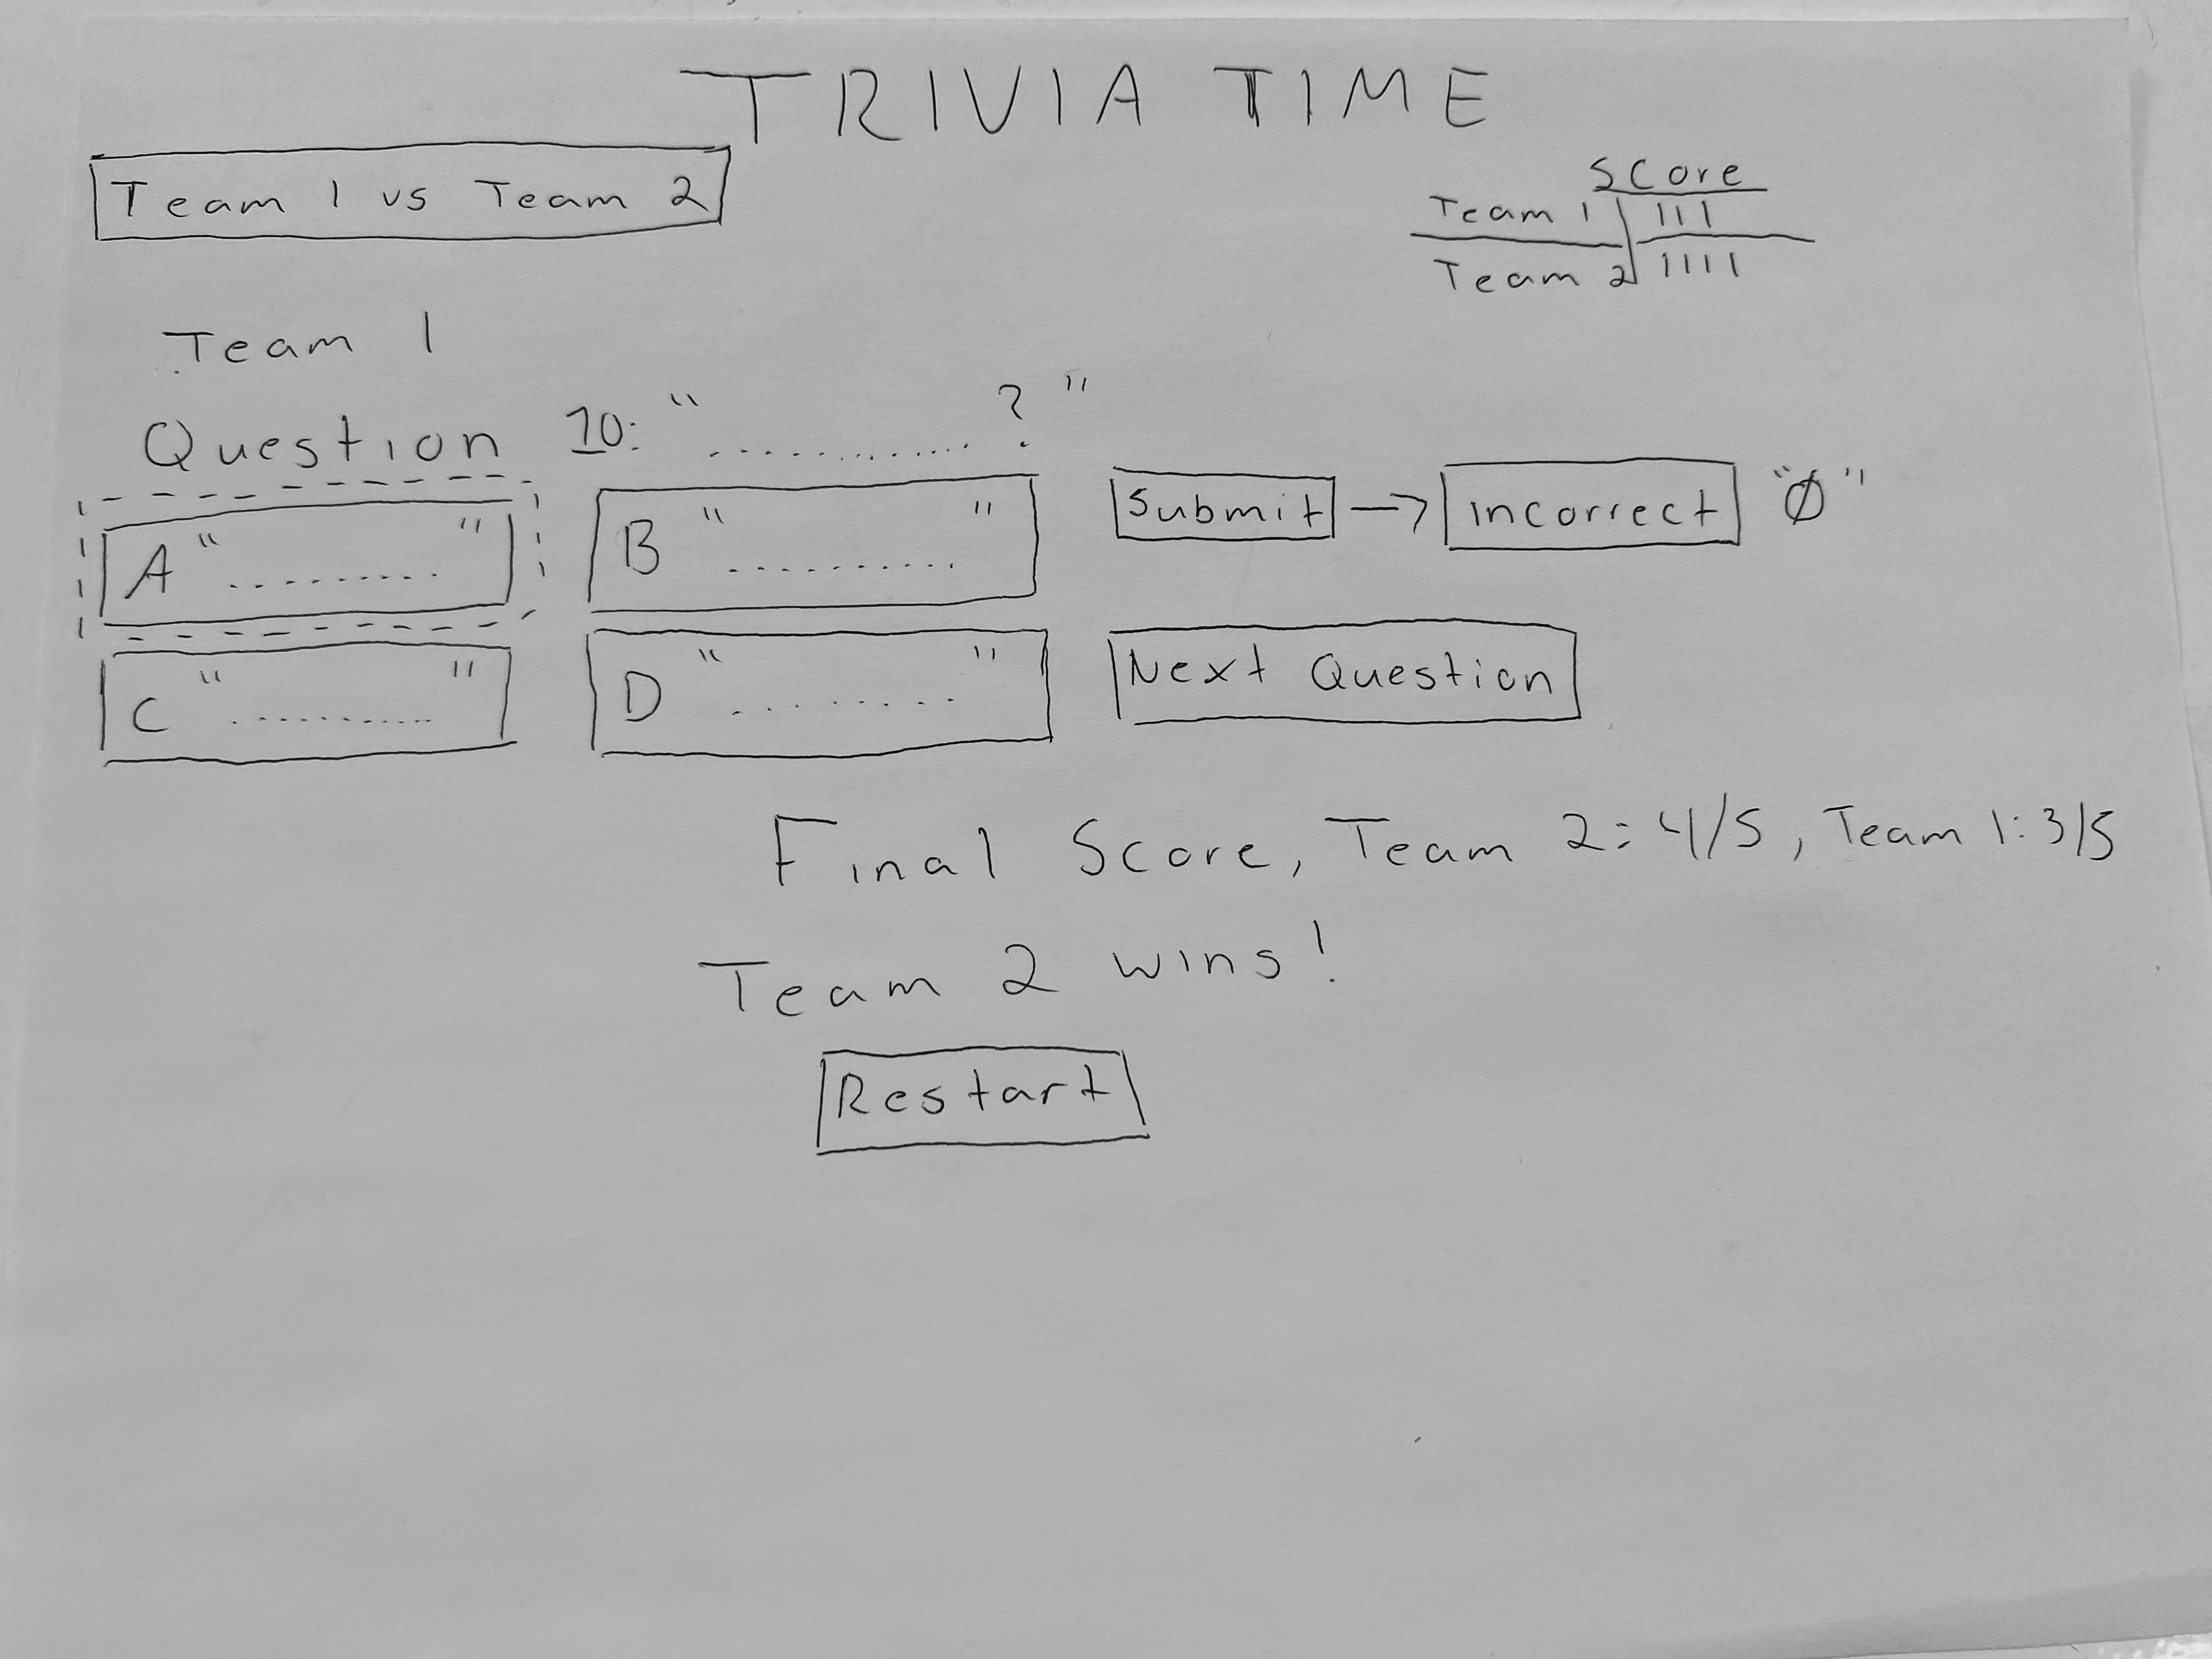 TRIVIA TIME
Team 1 vs Team 2
Score
Team 1 | | |
Team 2 | | | |
Team 1
Question 10: " ............ ? "
A " ......... "
B " .......... "
Submit → incorrect "Ø"
C " .......... "
D " ........ "
Next Question
Final Score, Team 2: 4/5, Team 1: 3/5
Team 2 wins!
Restart